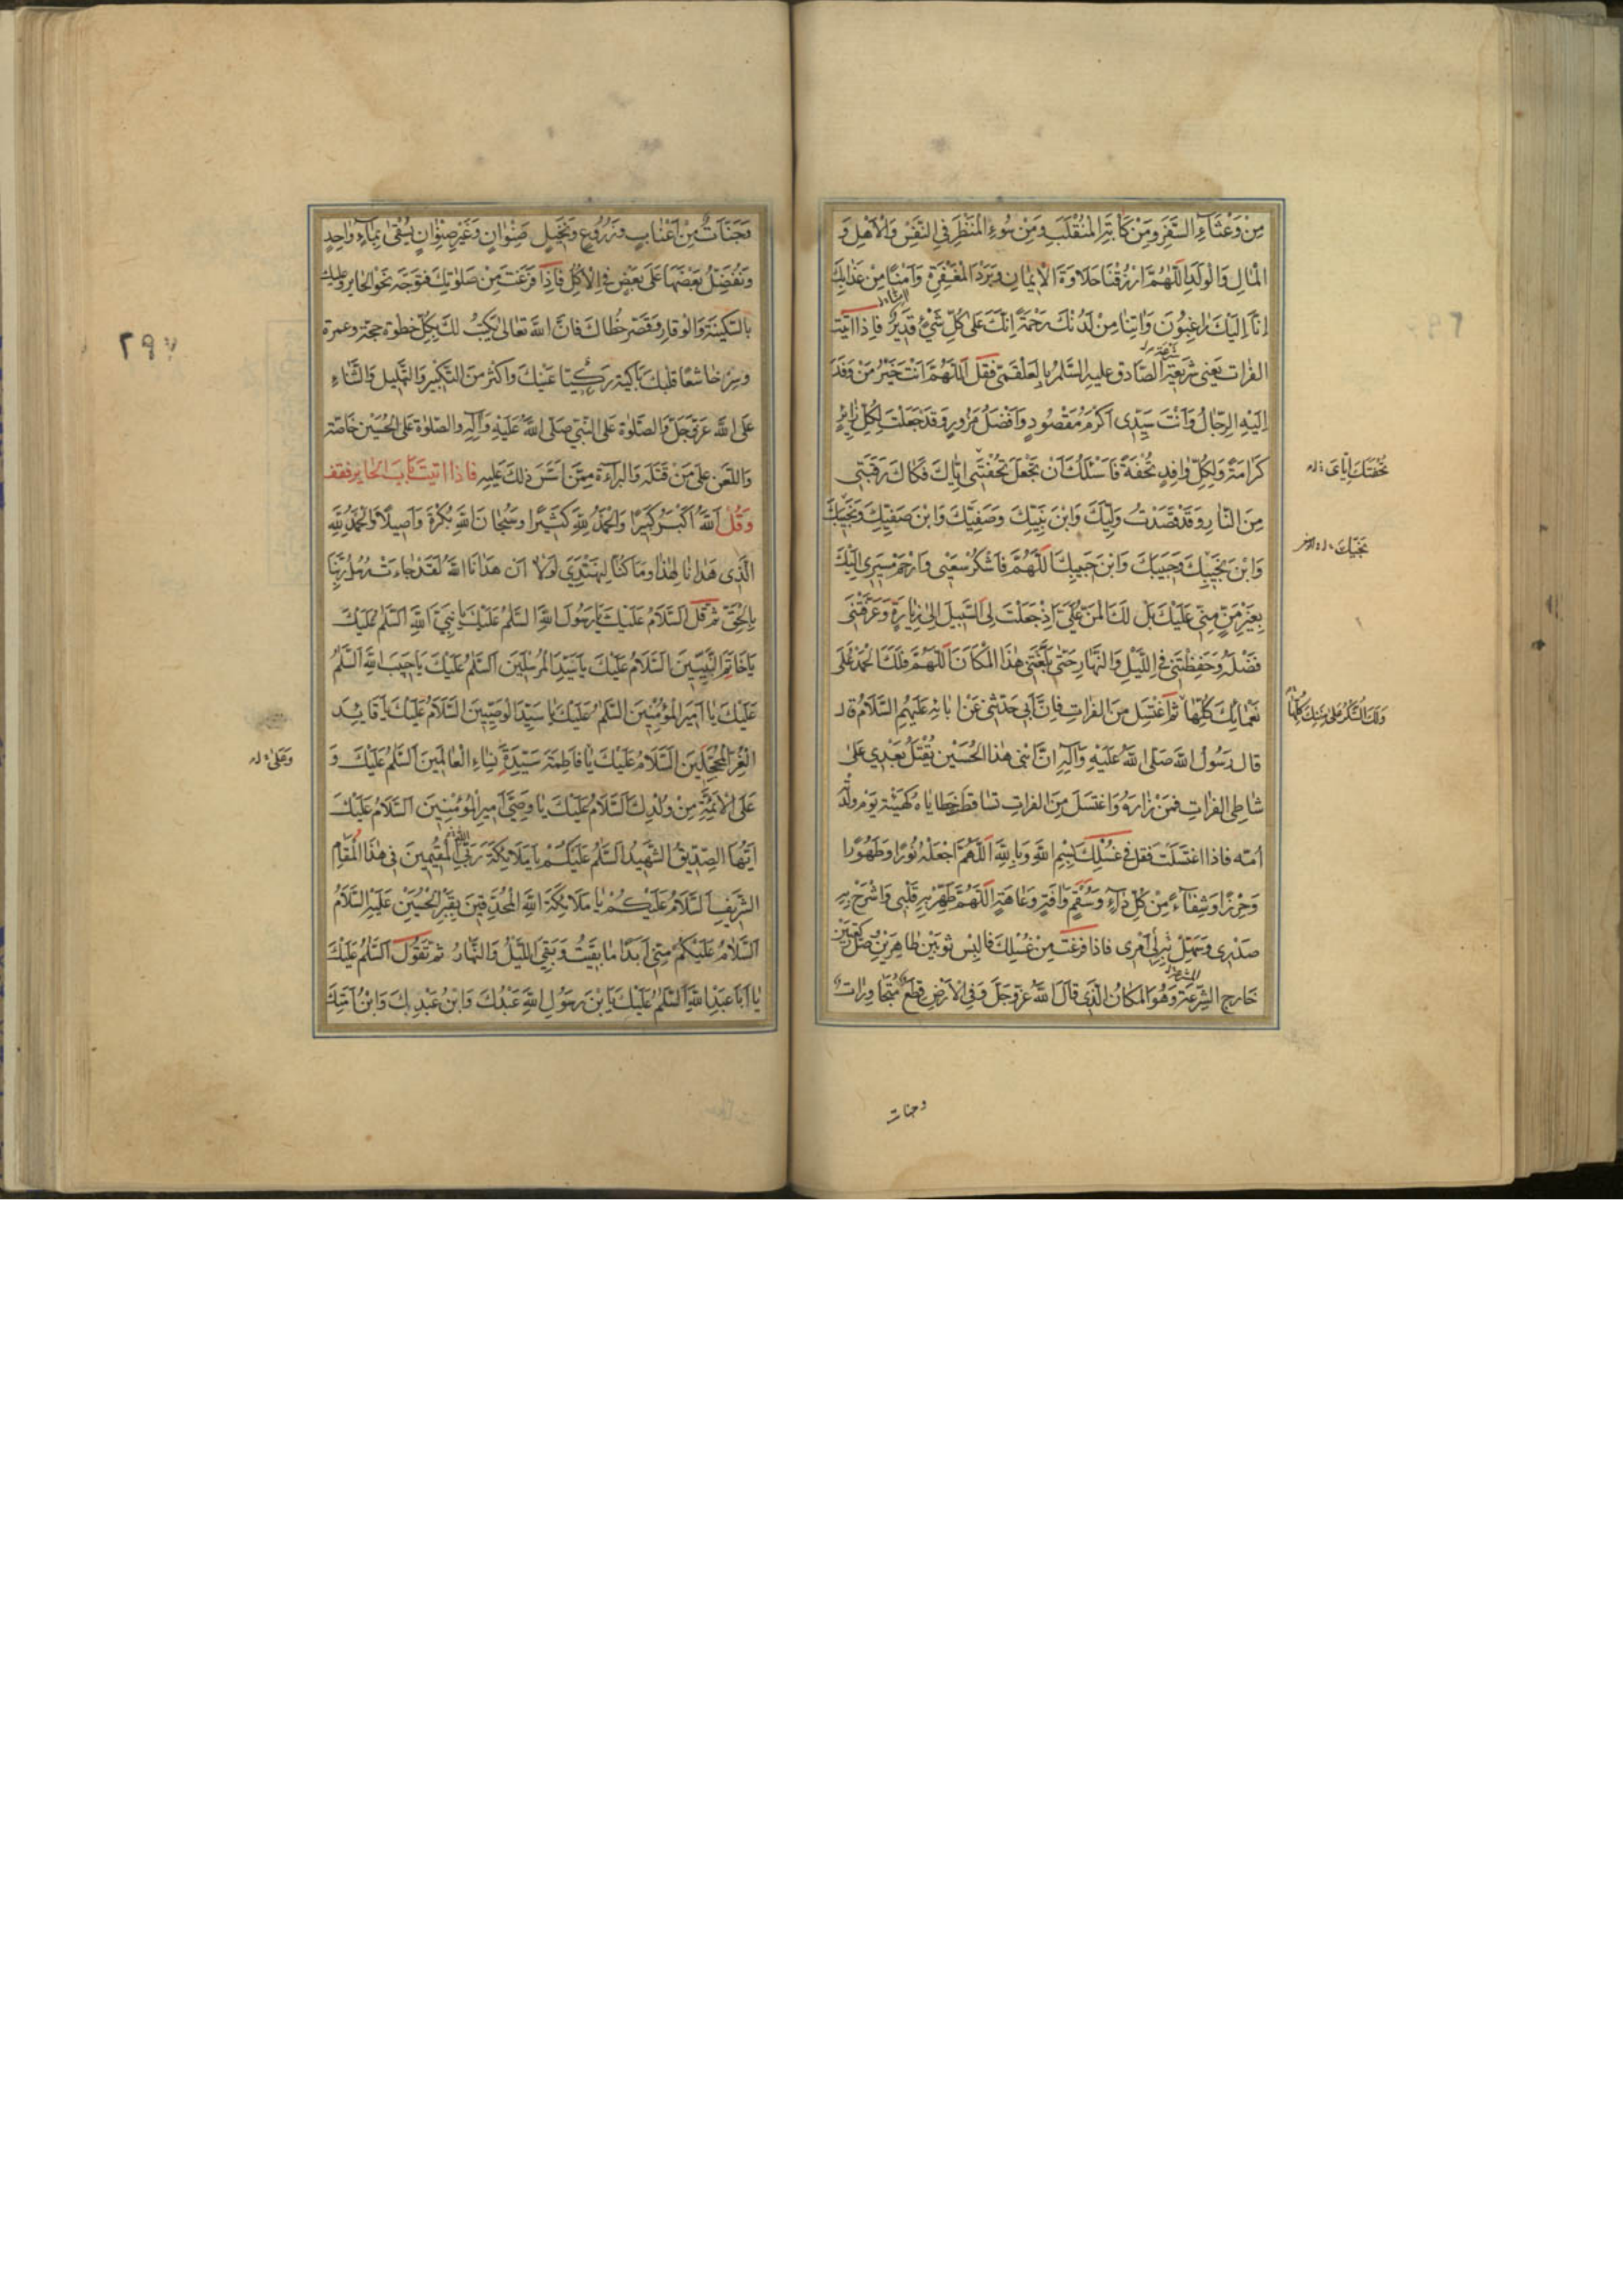 مِنْ وَعْثَاءِ السَّفَرِ وَمِنْ كَآبَةِ الْمُنْقَلَبِ وَمِنْ سُوءِ الْمَنْظَرِ فِي النَّفْسِ وَالْأَهْلِ وَ
الْمَالِ وَالْوَلَدِ اللّٰهُمَّ ارْزُقْنَا حَلَاوَةَ الْإِيمَانِ وَبَرْدَ الْمَغْفِرَةِ وَآمِنَّا مِنْ عَذَابِكَ
اِنَّا اِلَيْكَ رَاغِبُونَ وَآتِنَا مِنْ لَدُنْكَ رَحْمَةً اِنَّكَ عَلَى كُلِّ شَيْءٍ قَدِيرٌ فَاِذَا اَتَيْتَ
الفرات يَعْنِي شَرِيعَةَ الصَّادِقِ عليه السَّلم بِالعَلْقَمِي فَقُلْ اَللّٰهُمَّ اَنْتَ خَيْرُ مَنْ وَفَدَ
اِلَيْهِ الرِّجَالُ وَاَنْتَ سَيِّدِي اَكْرَمُ مَقْصُودٍ وَاَفْضَلُ مَزُورٍ وَقَدْ جَعَلْتَ لِكُلِّ زَائِرٍ
كَرَامَةً وَلِكُلِّ وَافِدٍ تُحْفَةً فَاَسْئَلُكَ اَنْ تَجْعَلَ تُحْفَتِي اِيَّاكَ فَكَاكَ رَقَبَتِي
تُحْفَتَكَ اِيَّايَ
مِنَ النَّارِ وَقَدْ قَصَدْتُ وَلِيَّكَ وَابْنَ نَبِيِّكَ وَصَفِيَّكَ وَابْنَ صَفِيِّكَ وَنَجِيبَكَ
وَابْنَ نَجِيبِكَ وَحَبِيبَكَ وَابْنَ حَبِيبِكَ اَللّٰهُمَّ فَاشْكُرْ سَعْيِي وَارْحَمْ مَسِيرِي اِلَيْكَ
نَجِيِّكَ
بِغَيْرِ مَنٍّ مِنِّي عَلَيْكَ بَلْ لَكَ الْمَنُّ عَلَيَّ اِذْ جَعَلْتَ لِي السَّبِيلَ اِلَى زِيَارَةٍ وَعَرَّفْتَنِي
فَضْلَهُ وَحَفِظْتَنِي فِي اللَّيْلِ وَالنَّهَارِ حَتَّى بَلَّغْتَنِي هٰذَا الْمَكَانَ اَللّٰهُمَّ فَلَكَ الْحَمْدُ عَلَى
نَعْمَائِكَ كُلِّهَا ثم اغْتَسِلْ مِنَ الفراتِ فَاِنَّ اَبِي حَدَّثَنِي عَنْ آبَائِهِ عَلَيْهِمُ السَّلَامُ قال
وَلَكَ الشُّكْرُ عَلَى مِنَنِكَ كُلِّهَا
قال رَسُولُ اللّٰهِ صَلَّى اللّٰهُ عَلَيْهِ وَآلِهِ اِنَّ ابْنِي هٰذَا الْحُسَيْنَ يُقْتَلُ بَعْدِي عَلَى
شَاطِي الفراتِ فَمَنْ زَارَهُ وَاغْتَسَلَ مِنَ الفراتِ تساقط خَطَايَاهُ كَهَيْئَةِ يَوْمَ وَلَدَتْهُ
اُمّه فاذا اغْتَسَلْتَ فَقُلْ فِي غُسْلِكَ بِسْمِ اللّٰهِ وَبِاللّٰهِ اَللّٰهُمَّ اجْعَلْهُ نُورًا وَطَهُورًا
وَحِرْزًا وَشِفَاءً مِنْ كُلِّ دَاءٍ وَسُقْمٍ وَآفَةٍ وَعَاهَةٍ اَللّٰهُمَّ طَهِّرْ بِهِ قَلْبِي وَاشْرَحْ بِهِ
صَدْرِي وَسَهِّلْ بِهِ لِي اَمْرِي فاذا فَرَغْتَ مِنْ غُسْلِكَ فَالْبِسْ ثَوْبَيْنِ طَاهِرَيْنِ وَصَلِّ رَكْعَتَيْنِ
خَارِجَ الشَّرِيعَةِ وَهُوَ الْمَكَانُ الَّذِي قَالَ اللّٰهُ عَزَّ وَجَلَّ وَفِي الْاَرْضِ قِطَعٌ مُتَجَاوِرَاتٌ
وجنات
وَجَنَّاتٌ مِنْ اَعْنَابٍ وَزُرُوعٍ وَنَخِيلٍ صِنْوَانٍ وَغَيْرِ صِنْوَانٍ يُسْقَى بِمَاءٍ وَاحِدٍ
وَنُفَضِّلُ بَعْضَهَا عَلَى بَعْضٍ فِي الْاُكُلِ فَاِذَا فَرَغْتَ مِنْ صَلٰوتِكَ فَتَوَجَّهْ نَحْوَ الحَايِرِ وَعَلَيْكَ
بِالسَّكِينَةِ وَالْوَقَارِ وَقَصِّرْ خُطَاكَ فَاِنَّ اللّٰهَ تَعَالَى يَكْتُبُ لَكَ بِكُلِّ خُطْوَةٍ حجّة وعمرة
وَسِرْ خَاشِعًا قَلْبُكَ بَاكِيَةً عَيْنُكَ وَاَكْثِرْ مِنَ التَّكْبِيرِ وَالتَّهْلِيلِ وَالثَّنَاءِ
عَلَى اللّٰهِ عَزَّ وَجَلَّ وَالصَّلٰوة عَلَى النَّبِيِّ صَلَّى اللّٰهُ عَلَيْهِ وَآلِهِ وَالصَّلٰوة عَلَى الحُسَيْنِ خَاصَّة
وَاللَّعْنِ عَلَى مَنْ قَتَلَهُ وَالْبَرَاءَةِ مِمَّنْ اَسَّسَ ذٰلِكَ عَلَيْهِ فَاِذَا اَتَيْتَ بَابَ الحَايِرِ فَقِفْ
وَقُلْ اَللّٰهُ اَكْبَرُ كَبِيرًا وَالْحَمْدُ لِلّٰهِ كَثِيرًا وَسُبْحَانَ اللّٰهِ بُكْرَةً وَاَصِيلًا وَالْحَمْدُ لِلّٰهِ
الَّذِي هَدَانَا لِهٰذَا وَمَا كُنَّا لِنَهْتَدِيَ لَوْلَا اَنْ هَدَانَا اللّٰهُ لَقَدْ جَاءَتْ رُسُلُ رَبِّنَا
بِالْحَقِّ ثم قُلْ اَلسَّلَامُ عَلَيْكَ يَا رَسُولَ اللّٰهِ السَّلمُ عَلَيْكَ يَا نَبِيَّ اللّٰهِ اَلسَّلمُ عَلَيْكَ
يَا خَاتَمَ النَّبِيِّينَ اَلسَّلَامُ عَلَيْكَ يَا سَيِّدَ الْمُرْسَلِينَ اَلسَّلمُ عَلَيْكَ يَا حَبِيبَ اللّٰهِ اَلسَّلمُ
عَلَيْكَ يَا اَمِيرَ الْمُؤْمِنِينَ السَّلمُ عَلَيْكَ يَا سَيِّدَ الْوَصِيِّينَ السَّلَامُ عَلَيْكَ يَا قَايِدَ
الْغُرِّ الْمُحَجَّلِينَ اَلسَّلَامُ عَلَيْكِ يَا فَاطِمَةُ سَيِّدَةَ نِسَاءِ الْعَالَمِينَ اَلسَّلمُ عَلَيْكَ وَ
وَعَلَى
عَلَى الْاَئِمَّةِ مِنْ وُلْدِكَ اَلسَّلَامُ عَلَيْكَ يَا وَصِيَّ اَمِيرِ الْمُؤْمِنِينَ اَلسَّلَامُ عَلَيْكَ
اَيُّهَا الصِّدِّيقُ الشَّهِيدُ اَلسَّلمُ عَلَيْكُمْ يَا مَلَائِكَةَ رَبِّي الْمُقِيمِينَ فِي هٰذَا الْمَقَامِ
الشَّرِيفِ اَلسَّلَامُ عَلَيْكُمْ يَا مَلَائِكَةَ اللّٰهِ الْمُحْدِقِينَ بِقَبْرِ الْحُسَيْنِ عَلَيْهِ السَّلَامُ
اَلسَّلَامُ عَلَيْكُمْ مِنِّي اَبَدًا مَا بَقِيتُ وَبَقِيَ اللَّيْلُ وَالنَّهَارُ ثم تَقُولُ اَلسَّلمُ عَلَيْكَ
يَا اَبَا عَبْدِ اللّٰهِ اَلسَّلمُ عَلَيْكَ يَا بْنَ رَسُولِ اللّٰهِ عَبْدُكَ وَابْنُ عَبْدِكَ وَابْنُ اَمَتِكَ